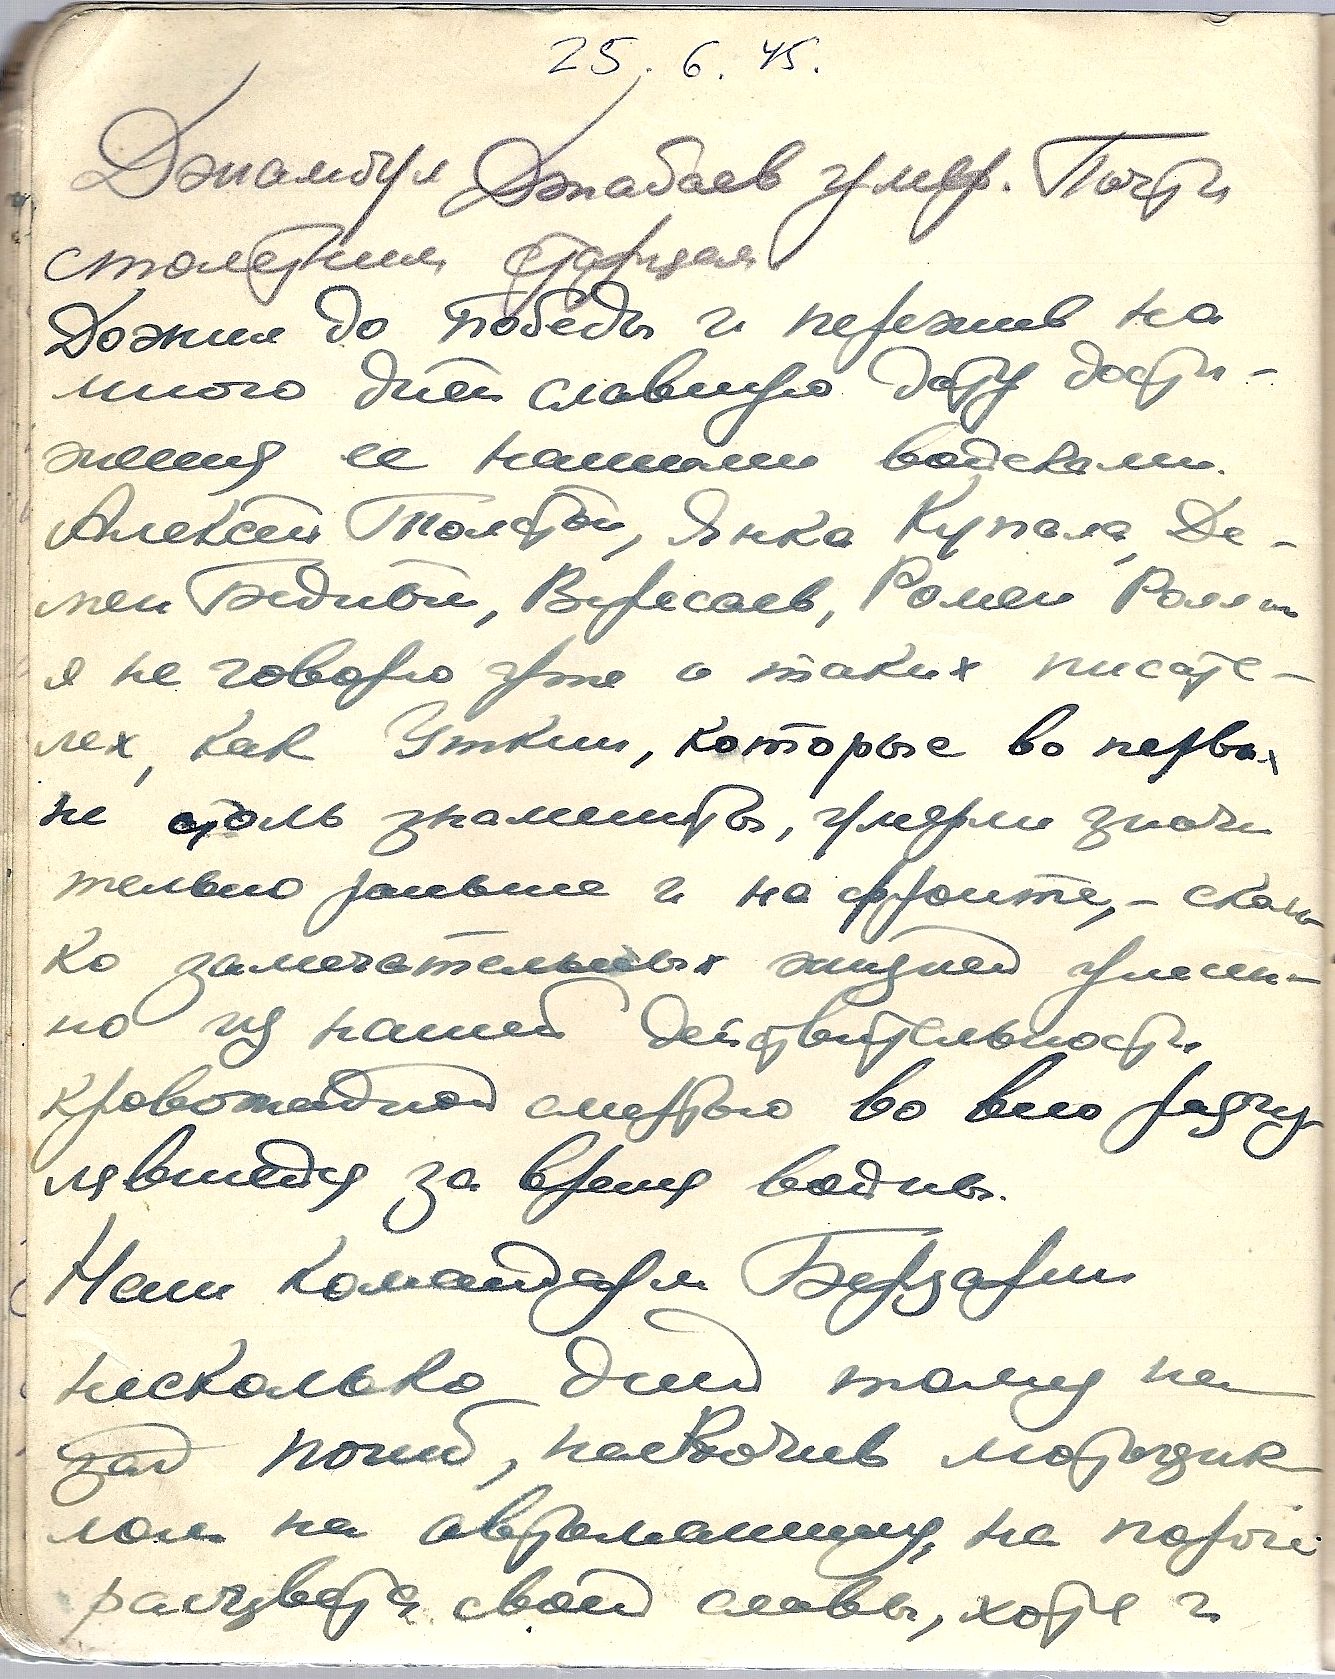 25. 6. 45.
Джамбул Джабаев умер. Почти
столетним старцем.
Дожил до победы и пережив на
много дней славную дату дости-
жения ее нашими войсками.
Алексей Толстой, Янка Купала, Де-
мьян Бедный, Вересаев, Ромен Роллан
я не говорю уже о таких писате-
лех, как Уткин, которые во первых
не столь знамениты, умерли значи
тельно раньше и на фронте, - сколь
ко замечательных жизней унесен-
но из нашей действительности
кровожадной смертью во всю разгу
лявшейся за время войны.
Наш командарм Берзарин
несколько дней тому на
зад погиб, наскочив мотоцик
лом на автомашину, на пороге
расцвета своей славы, хотя и